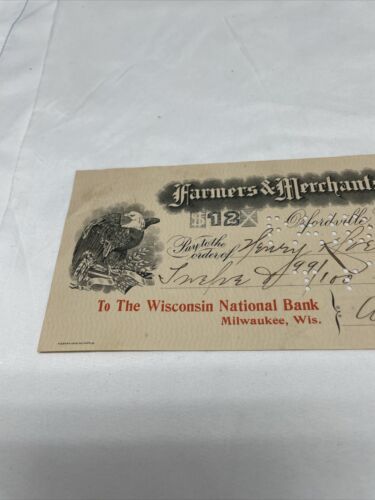 Farmers & Merchants
$12X Oxfordville
Pay to the order of Henry
Twelve & 99/100
To The Wisconsin National Bank
Milwaukee, Wis.